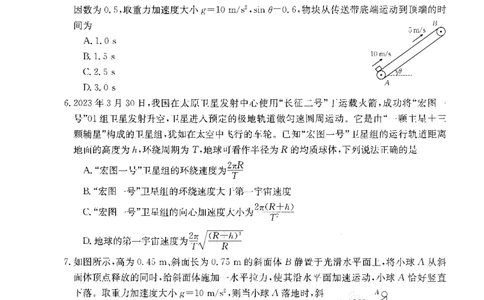 因数为 0.5,取重力加速度大小 g=10 m/s²,sin θ=0.6,物块从传送带底端运动到顶端的时
间为
A. 1.0 s
B. 1.5 s
C. 2.5 s
D. 3.0 s
B
5 m/s
10 m/s
θ
A
6. 2023 年 3 月 30 日,我国在太原卫星发射中心使用“长征二号”丁运载火箭,成功将“宏图一
号”01 组卫星发射升空,卫星进入预定的极地轨道做匀速圆周运动。它是由“一颗主星+三
颗辅星”构成的卫星组,犹如在太空中飞行的车轮。已知“宏图一号”卫星组的运行轨道距离
地面的高度为 h,环绕周期为 T,地球可看作半径为 R 的均质球体,下列说法正确的是
A. “宏图一号”卫星组的环绕速度为 2πR/T
B. “宏图一号”卫星组的环绕速度大于第一宇宙速度
C. “宏图一号”卫星组的向心加速度大小为 2π(R+h)/T²
D. 地球的第一宇宙速度为 2π/T √((R+h)³/R)
7. 如图所示,高为 0.45 m、斜面长为 0.75 m 的斜面体 B 静置于光滑水平面上,将小球 A 从斜
面体顶点释放的同时,给斜面体施加一水平拉力,使其沿水平面加速运动,小球 A 恰好竖直
下落。取重力加速度大小 g=10 m/s²,则当小球 A 落地时,斜
A